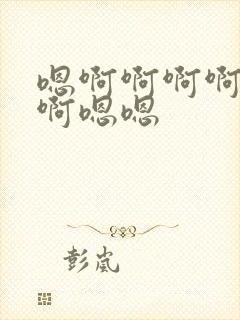 嗯啊啊啊啊
啊嗯嗯
彭岚